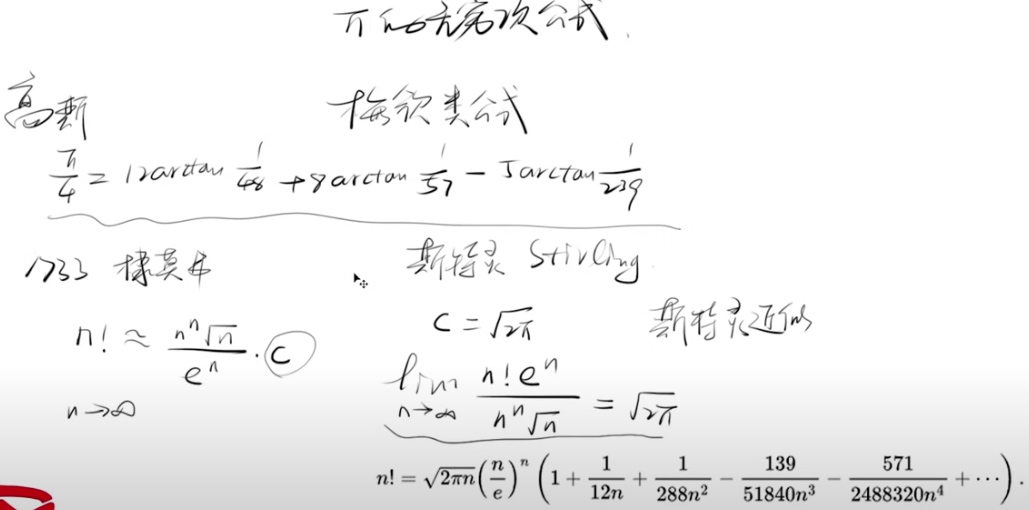 π的无穷次公式.
高斯 梅钦类公式
π/4 = 12arctan 1/48 + 8arctan 1/57 - 5arctan 1/239
1733 棣莫弗 斯特灵 Stirling.
n! ≈ n^n√n / e^n · C C = √2π 斯特灵近似
n→∞ lim n→∞ n!e^n / n^n√n = √2π
n! = √2πn (n/e)^n (1 + 1/12n + 1/288n² - 139/51840n³ - 571/2488320n⁴ + ⋯).